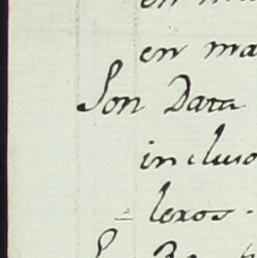 en ma
Son Data
incluso
lexos.